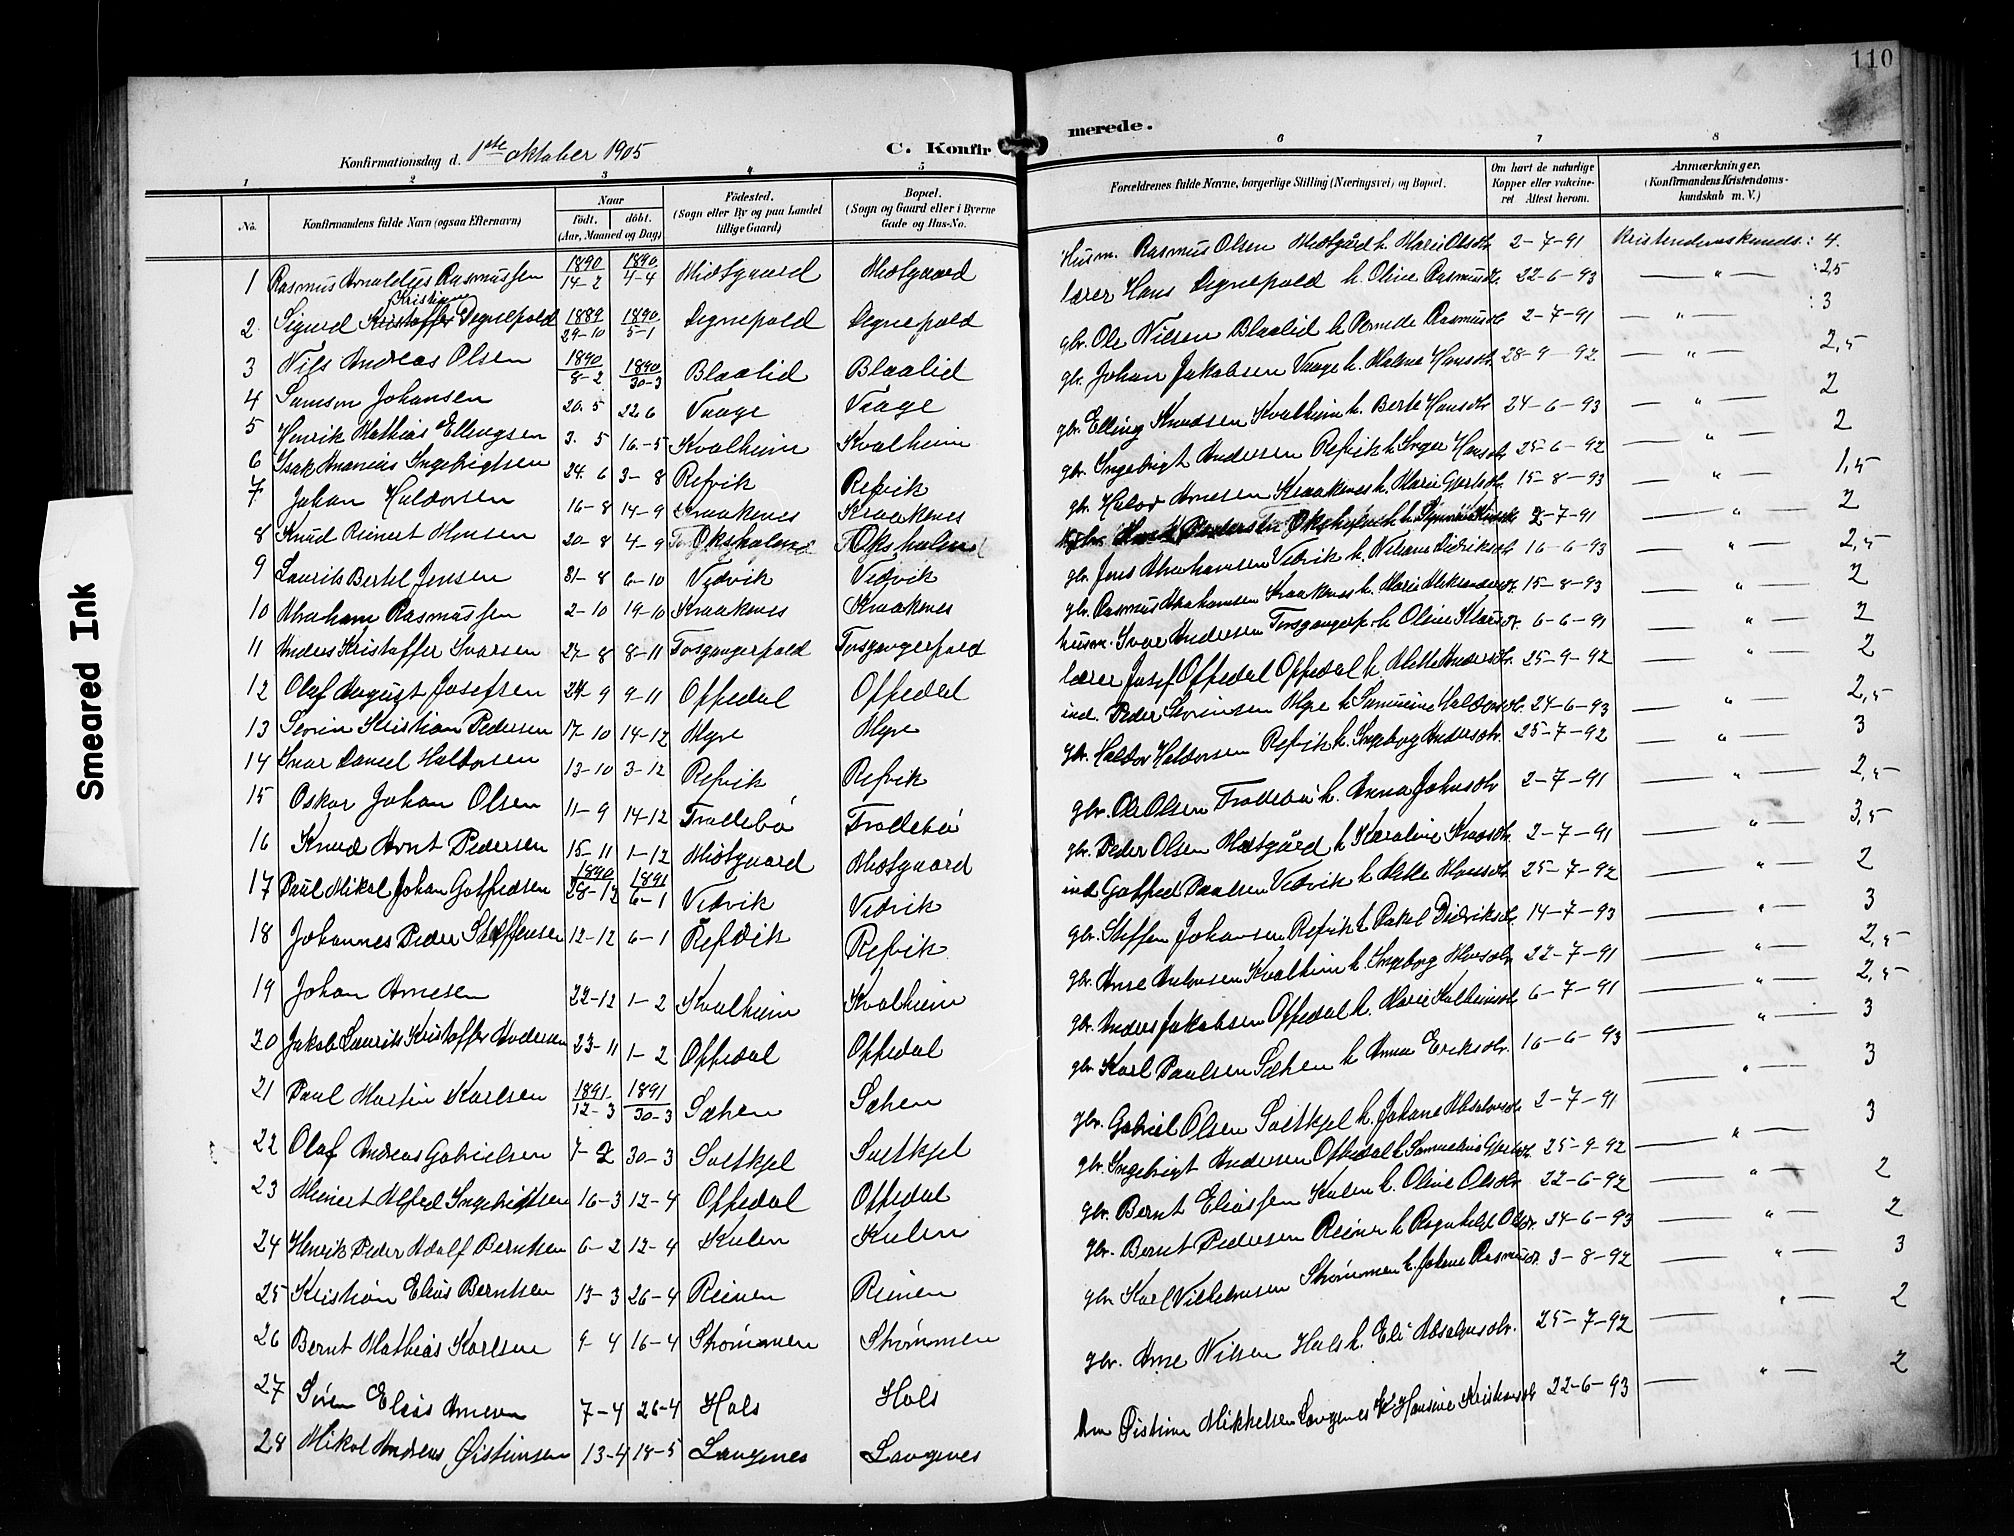 110
Konfirmationsdag d. 1ste oktober 1905
C. Konfir
merede.
1 2 3 4 5 6 7 8
No.
Konfirmandens fulde Navn (ogsaa Efternavn)
Naar
født. døbt.
(Aar, Maaned og Dag)
Födested.
(Sogn eller By og paa Landet
tillige Gaard)
Bopæl.
(Sogn og Gaard eller i Byerne
Gade og Hus-No.
Forældrenes fulde Navne, borgerlige Stilling (Næringsvei) og Bopæl.
Om havt de naturlige
Kopper eller vakcine-
ret Attest herom.
Anmærkninger.
(Konfirmandens Kristendoms-
kundskab m. V.)
1 Rasmus Arnoldus Rasmussen 1890 14-2 1890 4-4 Midtgaard Midtgaard Husm. Rasmus Olsen Midtgård h. Marie Olsdtr. 2-7-91 Kristendomskunds.: 4.
2 Sigurd Kristian Degnepold 1889 29-10 1890 5-1 Degnepold Degnepold lærer Hans Degnepold h. Oline Rasmusdtr. 22-6-93 — " — : 2,5
3 Nils Andreas Olsen 1890 8-2 1890 30-3 Blaalid Blaalid gbr. Ole Nilsen Blaalid h. Pernede Rasmusdtr. 2-7-91 — " — : 3
4 Samson Johansen 20.5 22 6 Vaage Vaage gbr. Johan Jakobsen Vaage h. Malene Hansdtr. 28-9-92 — " — 2,5
5 Henrik Mathias Ellingsen 3. 5 16-5 Kvalheim Kvalheim gbr. Elling Knudsen Kvalheim h. Berte Hansdtr. 24-6-93 — " — 2
6 Isak Ananias Ingebrigtsen 24. 6 3-8 Refvik Refvik gbr. Ingebrigt Andersen Refvik h. Inger Hansdtr. 25-6-92 " — 2
7 Johan Haldorsen 16-8 14-9 Kraakenes Kraakenes gbr. Haldor Arnesen Kraakenes h. Marie Gjertsdtr. 15-8-93 " 1,5
8 Knud Reinert Monsen 20-8 4-9 Oksholmen Oksholmen 2-7-91 — " — 2
9 Laurits Bertel Jensen 31-8 6-10 Vedvik Vedvik gbr. Jens Abrahamsen Vedvik h. Nilsine Didriksdtr. 16-6-93 — " — 2
10 Abraham Rasmussen 2-10 19-10 Kraakenes Kraakenes gbr. Rasmus Abrahamsen Kraakenes h. Marie Aleksandersdtr. 15-8-93 — " — 2,5
11 Anders Kristoffer Ivarsen 27-8 8-11 Torsgangerpold Torsgangerpold husm. Ivar Andersen Torsgangerp. h. Oline Klausdtr. 6-6-91 — " — 2
12 Olaf August Josefsen 24 9 9-11 Oppedal Oppedal lærer Josef Oppedal Oppedal h. Mette Andersdtr. 25-9-92 — " — 2
13 Severin Kristian Pedersen 17-10 14-12 Myre Myre ind. Peder Severinsen Myre h. Samueline Haldorsdtr. 24-6-93 — " — 2
14 Ivar Daniel Haldorsen 13-10 3-12 Refvik Refvik gbr. Haldor Haldorsen Refvik h. Ingeborg Andersdtr. 25-7-92 — " — 2,5
15 Oskar Johan Olsen 11-9 14-12 Trollebø Trollebø gbr. Ole Olsen Trollebø h. Anna Johnsdtr 2-7-91 — " — 3
16 Knud Arnt Pedersen 15-11 1-12 Midtgaard Midtgaard gbr. Peder Olsen Midtgård h. Karoline Knudsdtr. 2-7-91 — " — 2,5
17 Paul Mikal Johan Gotfredsen 1890 28-12 1891 6-1 Vedvik Vedvik ind Gotfred Paulsen Vedvik h. Mette Monsdtr. 25-7-92 — " — 3,5
18 Johannes Peder Steffensen 12-12 6-1 Refvik Refvik gbr. Steffen Johansen Refvik h Rakel Didriksdtr. 14-7-93 — " — 2
19 Johan Arnesen 22-12 1-2 Kvalheim Kvalheim gbr. Arne Kvalheim h. Ingeborg Monsdtr 22-7-91 — " — 3
20 Jakob Laurits Kristoffer Andersen 23-11 1-2 Oppedal Oppedal gbr. Anders Jakobsen Oppedal h. Marie 6-7-91 — " — 2,5
21 Paul Martin Karlsen 1891 12-3 1891 30-3 Sæhen Sæhen gbr. Karl Paulsen Sæhen h Anna Eriksdtr. 16-6-93 — " — 2,5
22 Olaf Andreas Gabrielsen 7-2 30-3 Saltkjel Saltkjel gbr. Gabriel Olsen Saltkjel h. Johane Absalonsdtr. 2-7-91 — " — 3
23 Meinert Alfred Ingebrigtsen 16-3 12-4 Oppedal Oppedal gbr. Ingebrigt Andersen Oppedal h. Samueline Gjertsdtr. 25-9-92 — " — 3
24 Henrik Peder Adolf Berntsen 6-2 12-4 Kulen Kulen gbr. Bernt Eliassen Kulen h. Oline Olsdtr 22-6-92 — " — 3
25 Kristian Elias Berntsen 13-3 26-4 Reinen Reinen gbr. Bernt Pedersen Reinen h Ragnhild Olsdtr. 24-6-93 — " — 2
26 Bernt Mathias Karlsen 9-4 16-4 Strømmen Strømmen gbr Karl Vilhelmsen Strømmen h. Johane Rasmusdtr. 3-8-92 — " — 2
27 Sören Elias Arnesen 7-4 26-4 Hals Hals gbr. Arne Nilsen Hals h. Eli Absalonsdtr. 25-7-92 — " — 3
28 Mikal Andreas Øistensen 13-4 18-5 Langenes Langenes Mikkelsen Langenes h. Hansine Kristiansdtr 22-6-93 — " — 2
" — 2
Smeared Ink